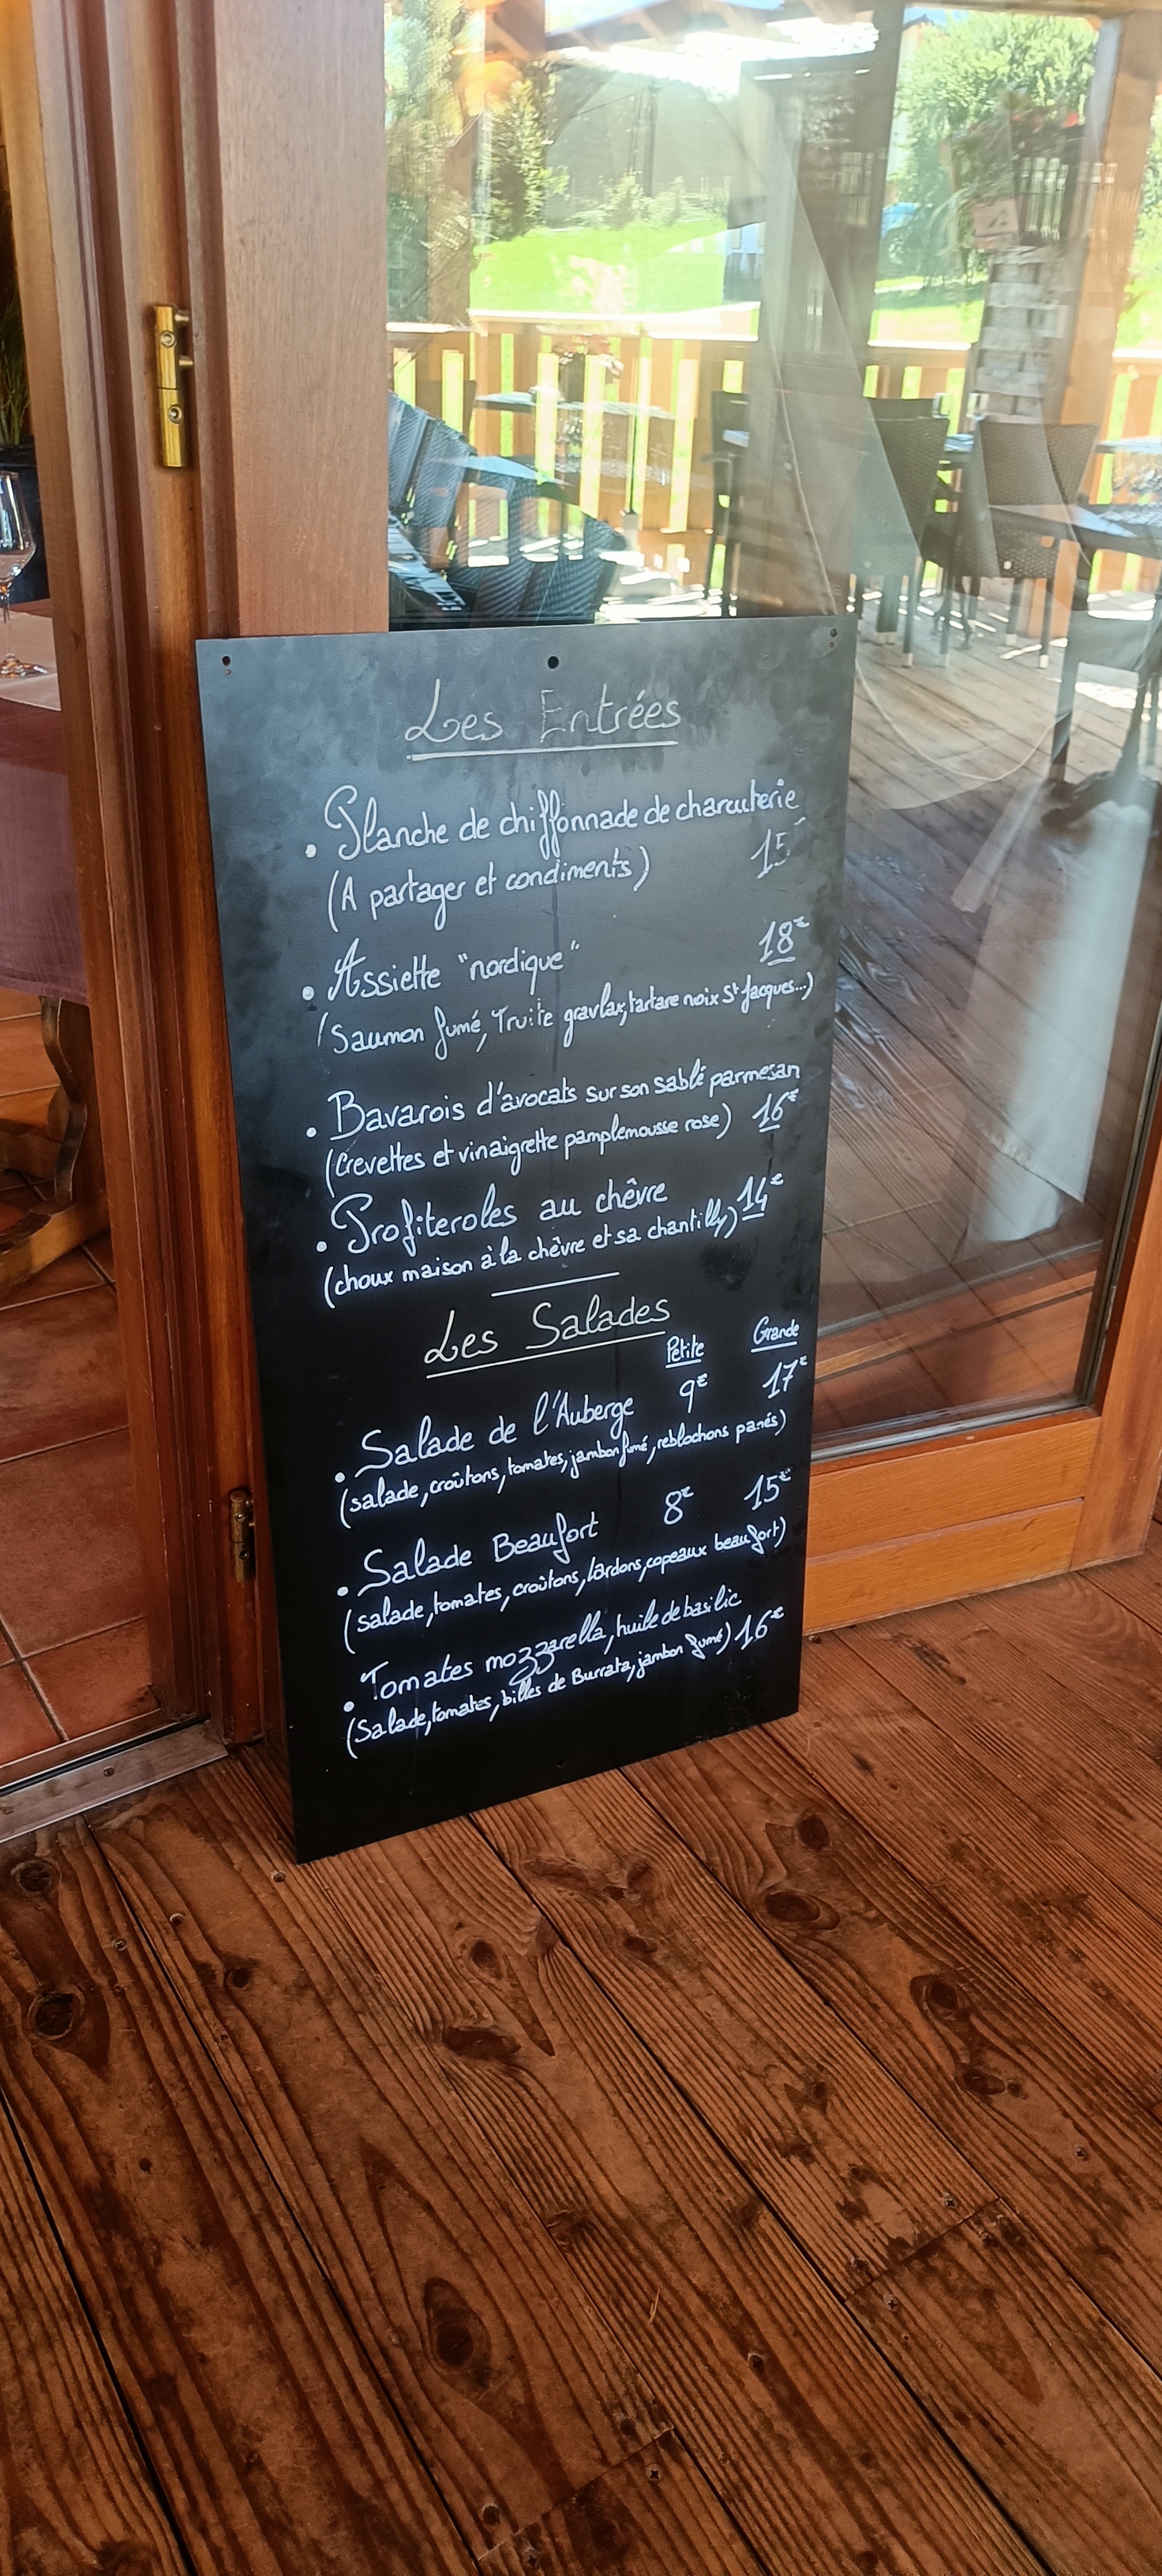 Les Entrées
• Planche de chiffonnade de charcuterie
(A partager et condiments) 15
• Assiette "nordique" 18€
(Saumon fumé, Truite gravlax, tartare noix St Jacques...)
• Bavarois d'avocats sur son sablé parmesan
(Crevettes et vinaigrette pamplemousse rose) 16€
• Profiteroles au chêvre 14€
(choux maison à la chêvre et sa chantilly)
Les Salades
Petite Grande
• Salade de l'Auberge 9€ 17€
(salade, croûtons, tomates, jambon fumé, reblochons panés)
• Salade Beaufort 8€ 15€
(salade, tomates, croûtons, lardons, copeaux beaufort)
• Tomates mozzarella, huile de basilic
(Salade, tomates, billes de Burrata, jambon fumé) 16€